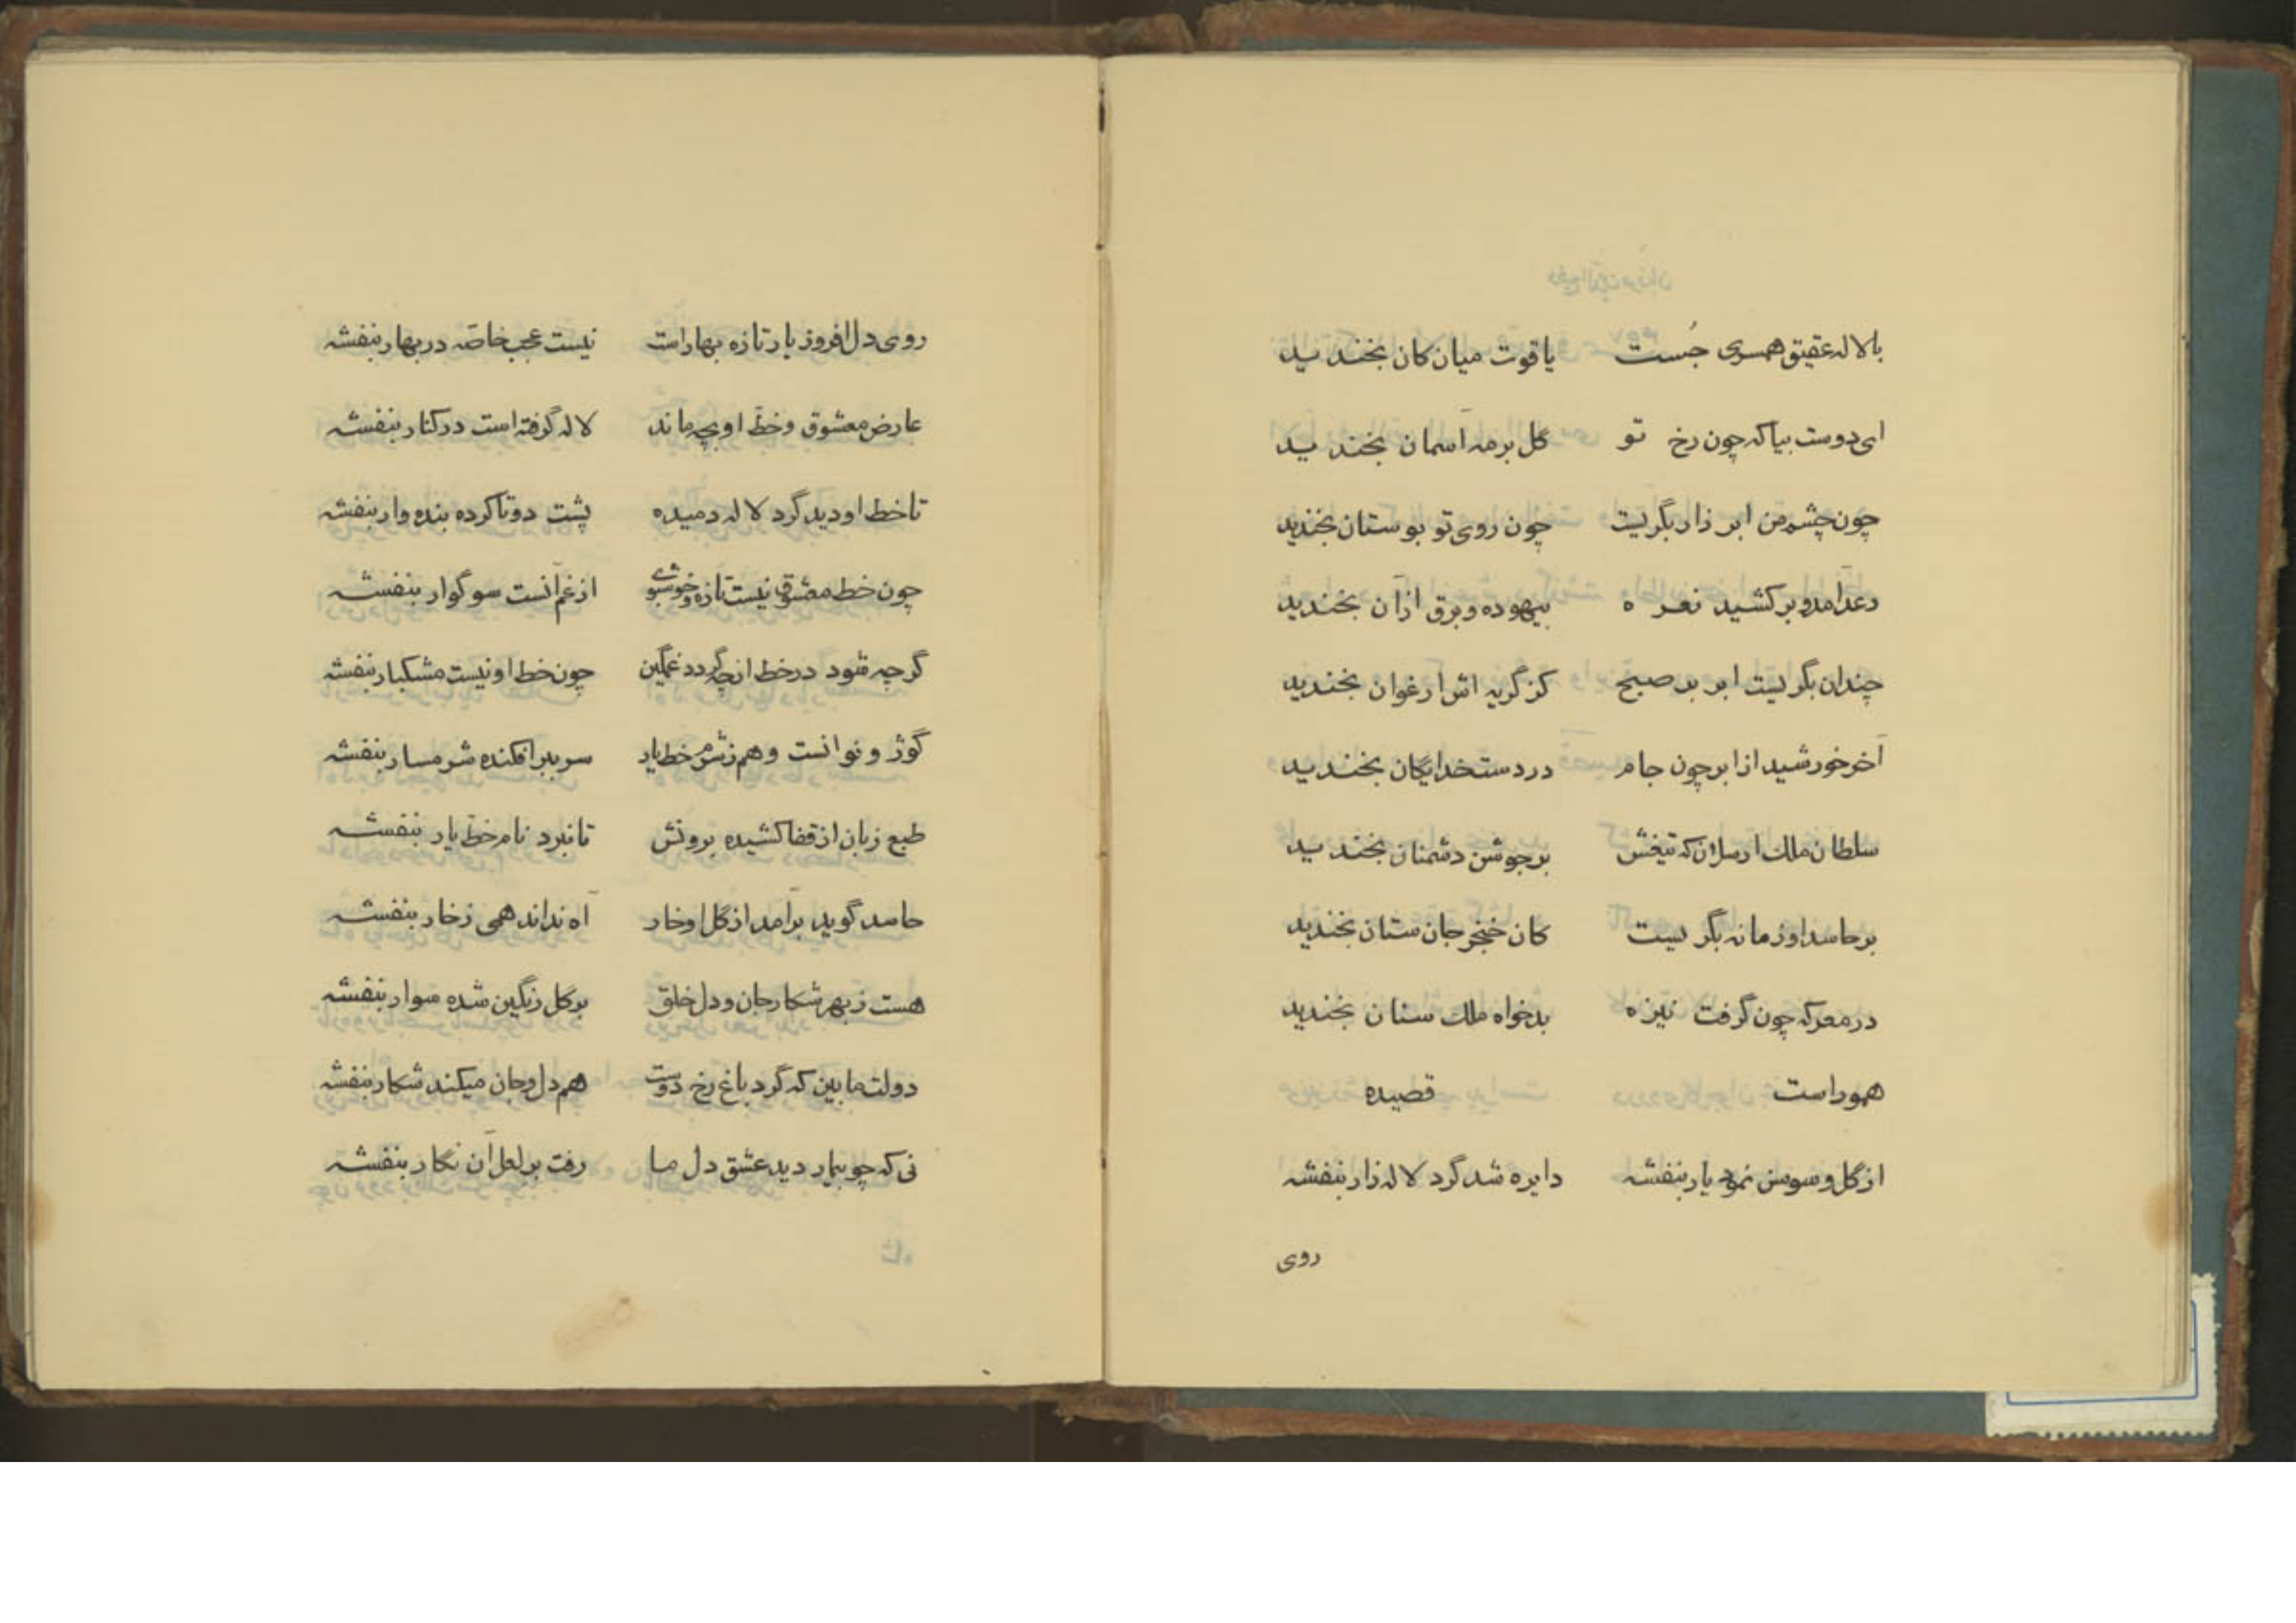 بالاله عقیق همسری جُست یاقوت میان کان بخندید
ای دوست بیا که چون رخ تو گل بر مه آسمان بخندید
چون چشم من ابر زار بگریست چون روی تو بوستان بخندید
رعد آمد و برکشید نعره بیهوده و برق ازان بخندید
چندان بگریست ابر بر صبح کز گریه اش ارغوان بخندید
آخر خورشید از ابر چون جام در دست خدایگان بخندید
سلطان ملک ارسلان که تیغش بر جوشن دشمنان بخندید
بر حاسد او زمانه بگریست کان خنجر جان ستان بخندید
در معرکه چون گرفت نیزه بدخواه ملک سنان بخندید
هموراست قصیده
از گل و سوسن نمود یار بنفشه دایره شد گرد لاله زار بنفشه
روی
روی دل افروز یار تازه بهار است نیست عجب خاصّه در بهار بنفشه
عارض معشوق و خطّ او بچه ماند لاله گرفته است در کنار بنفشه
تا خط او دید گرد لاله دمیده پشت دوتا کرده بنده وار بنفشه
چون خط معشوق نیست تازه و خوشبوی از غم آنست سوگوار بنفشه
گرچه شود در خط ارچه گردد غمگین چون خط او نیست مشکبار بنفشه
گوژ و نوانست و هم ز شرم خط یار سر ببر افکنده شرمسار بنفشه
طبع زبان از قفا کشیده برونش تا نبرد نام خطّ یار بنفشه
حاسد گوید برآمد از گل او خار آه نداند همی ز خار بنفشه
هست ز بهر شکار جان و دل خلق بر گل رنگین شده سوار بنفشه
دولت ما بین که گرد باغ رخ دوست هم دل و جان میکند شکار بنفشه
نی که چو بیمار دید عشق دل ما رفت بر لعل آن نگار بنفشه